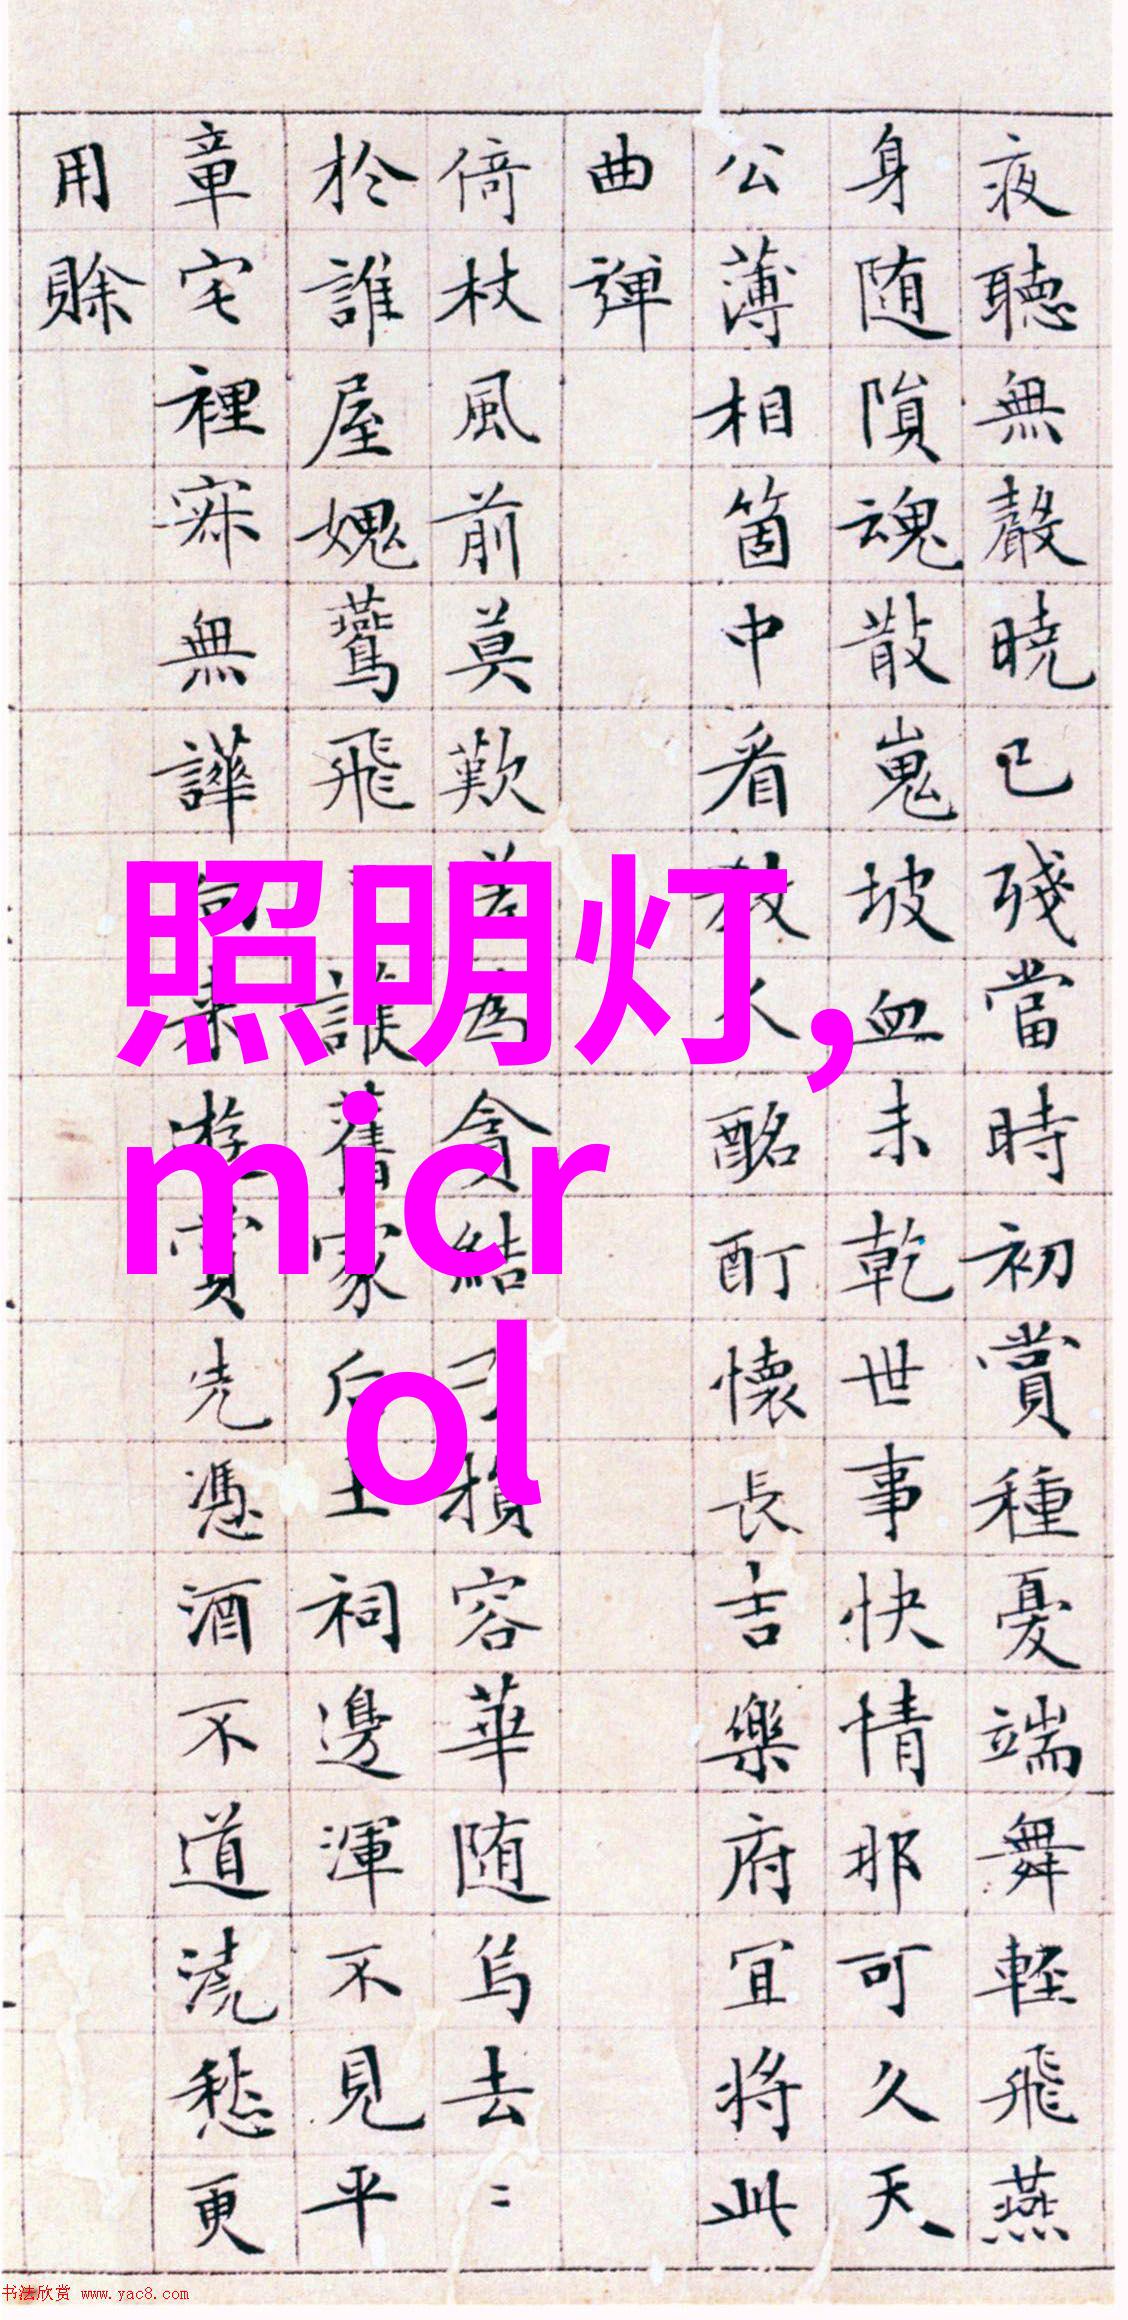 夜聽無聲曉已殘當時初賞種憂端舞輕飛燕
身随隕魂散嵬坡血未乾世事快情那可久天
公薄相箇中看教人酩酊懷長吉樂府冝將此
曲彈
倚杖風前莫歎為貪結子損容華随烏去
於誰屋媿鷰飛誰舊家后土祠邊渾不見平
章宅裡寐無譁來遊賞先憑酒不道澆愁更
用賒
照明灯,
micr
ol
书法欣赏 www.yac8.com